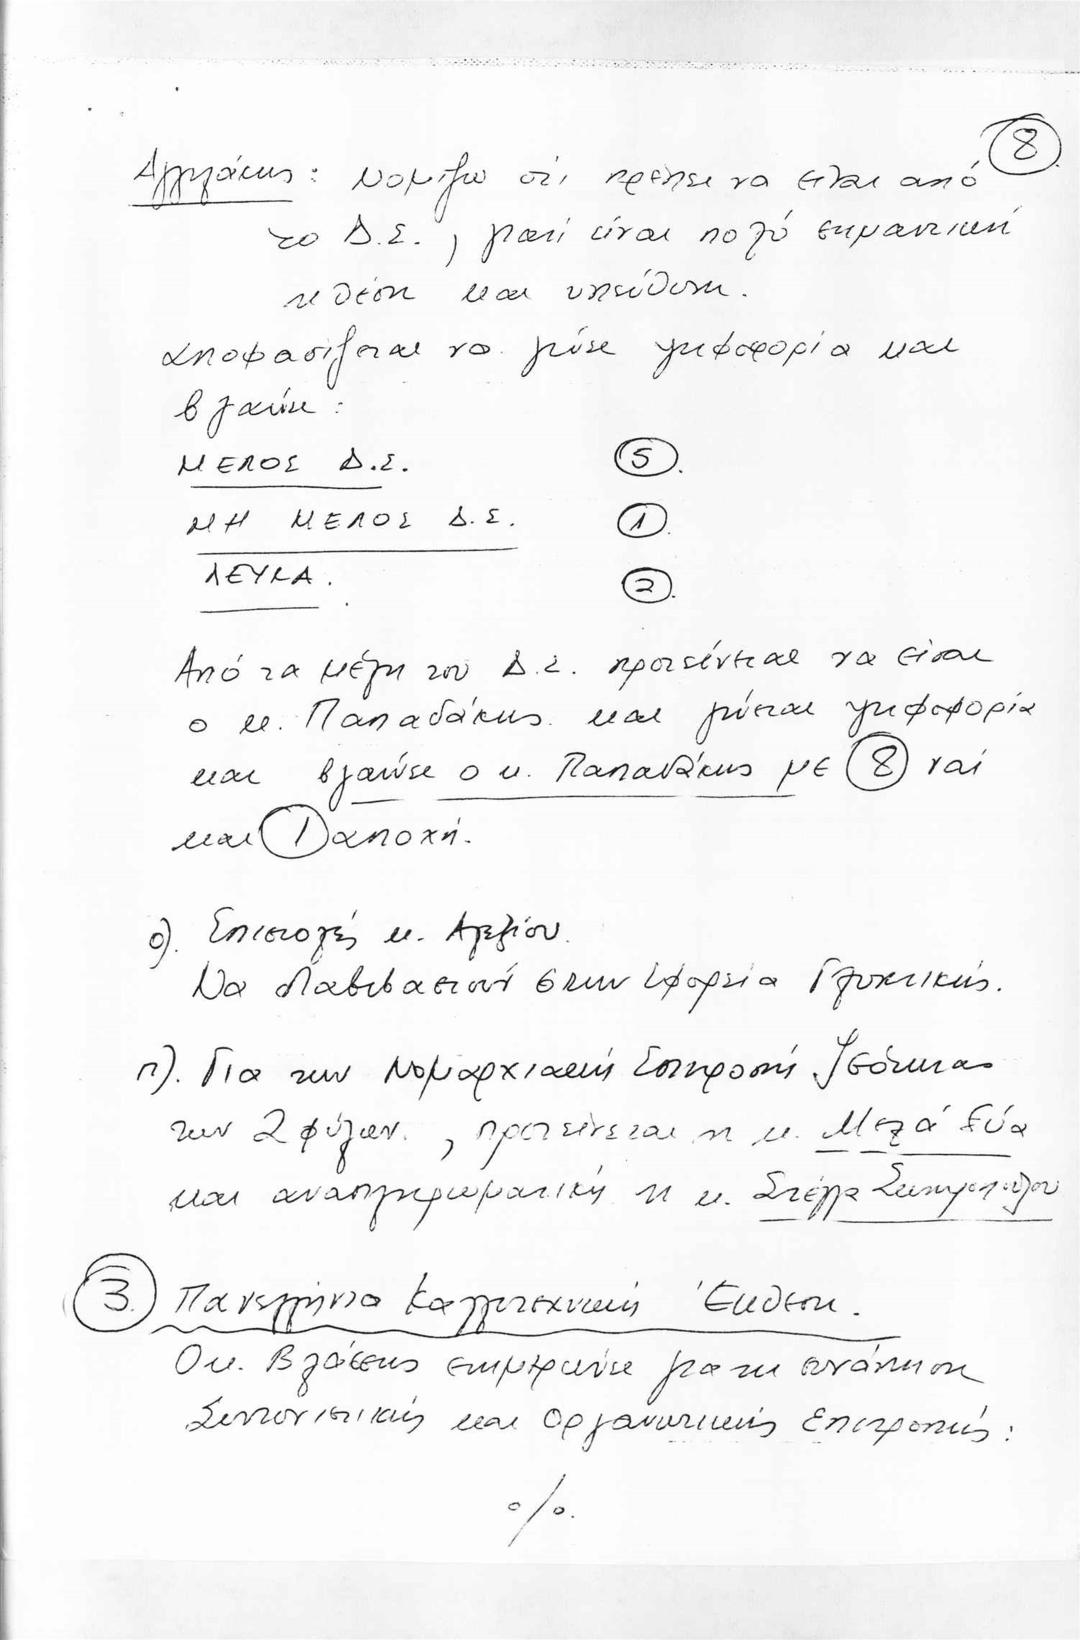 8
Αγγελάκης: Νομίζω ότι πρέπει να είναι από
το Δ.Σ., γιατί είναι πολύ σημαντική
η θέση και υπεύθυνη.
Αποφασίζεται να γίνει ψηφοφορία και
βγαίνει:
ΜΕΛΟΣ Δ.Σ. 5.
ΜΗ ΜΕΛΟΣ Δ.Σ. 1.
ΛΕΥΚΑ. 2.
Από τα μέλη του Δ.Σ. προτείνεται να είναι
ο κ. Παπαδάκης και γίνεται ψηφοφορία
και βγαίνει ο κ. Παπαδάκης με 8 ναί
και 1 αποχή.
ο). Επιστολές κ. Αλεξίου.
Να διαβιβαστούν στην Εφορεία Γλυπτικής.
π). Για την Νομαρχιακή Επιτροπή Ισότητας
των 2 φύλων, προτείνεται η κ. Μελά Εύα
και αναπληρωματική η κ. Στέλλα
3. Πανελλήνια Καλλιτεχνική Έκθεση.
Ο κ. Βλάσσης ενημερώνει για τη συνάντηση
Συντονιστικής και Οργανωτικής Επιτροπής:
ο/ο.